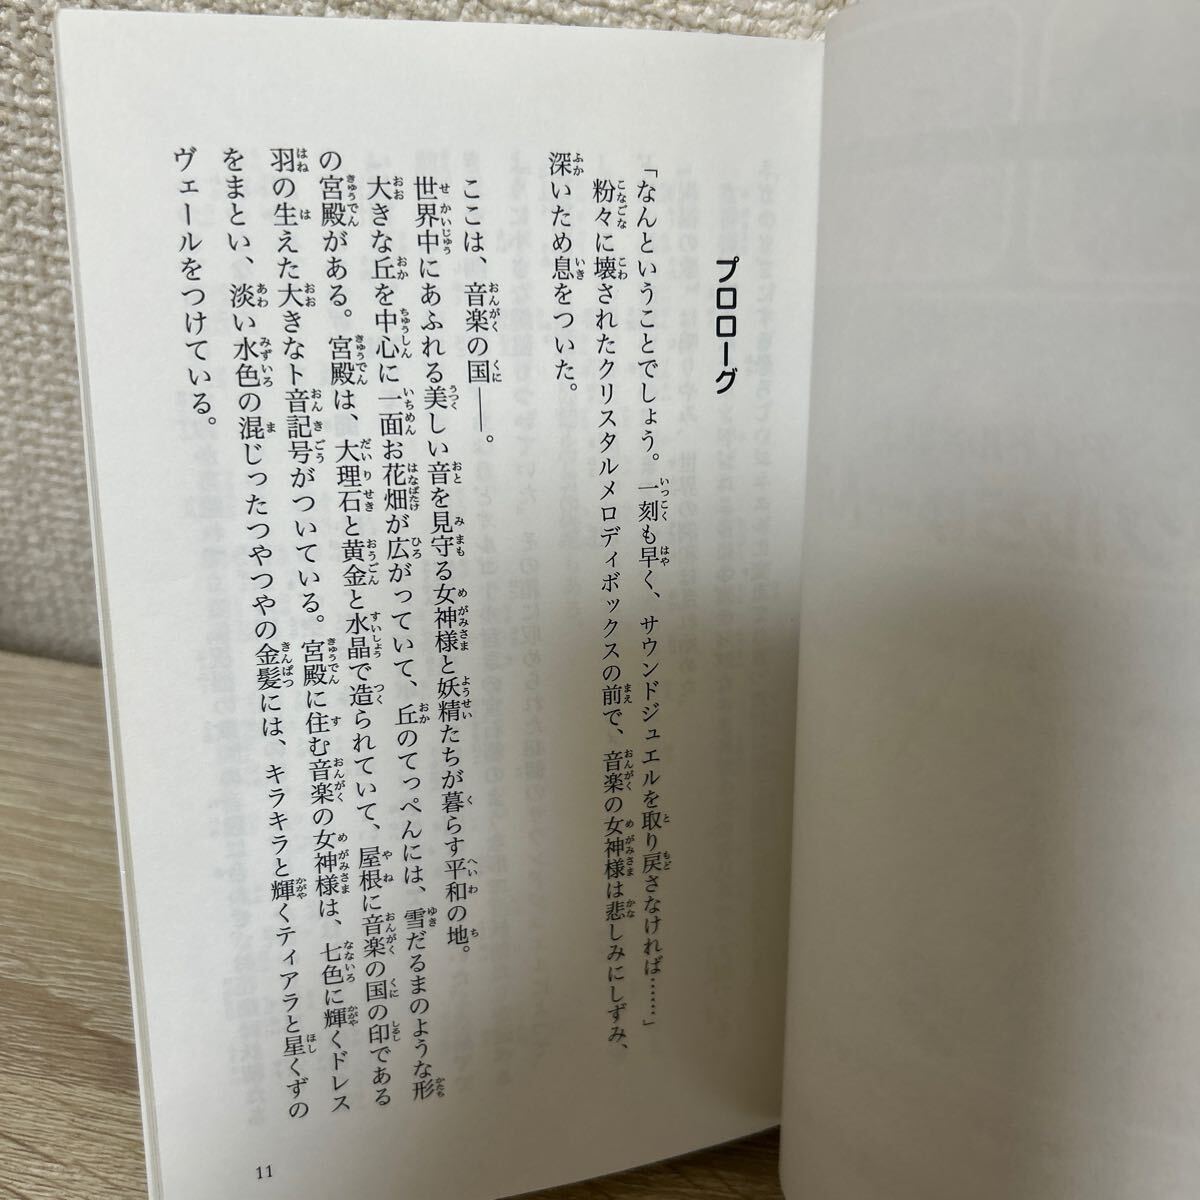 プロローグ
「なんということでしょう。一刻も早く、サウンドジュエルを取り戻さなければ……」
粉々に壊されたクリスタルメロディボックスの前で、音楽の女神様は悲しみにしずみ、
深いため息をついた。
ここは、音楽の国――。
世界中にあふれる美しい音を見守る女神様と妖精たちが暮らす平和の地。
大きな丘を中心に一面お花畑が広がっていて、丘のてっぺんには、雪だるまのような形
の宮殿がある。宮殿は、大理石と黄金と水晶で造られていて、屋根に音楽の国の印である
羽の生えた大きなト音記号がついている。宮殿に住む音楽の女神様は、七色に輝くドレス
をまとい、淡い水色の混じったつやつやの金髪には、キラキラと輝くティアラと星くずの
ヴェールをつけている。
11